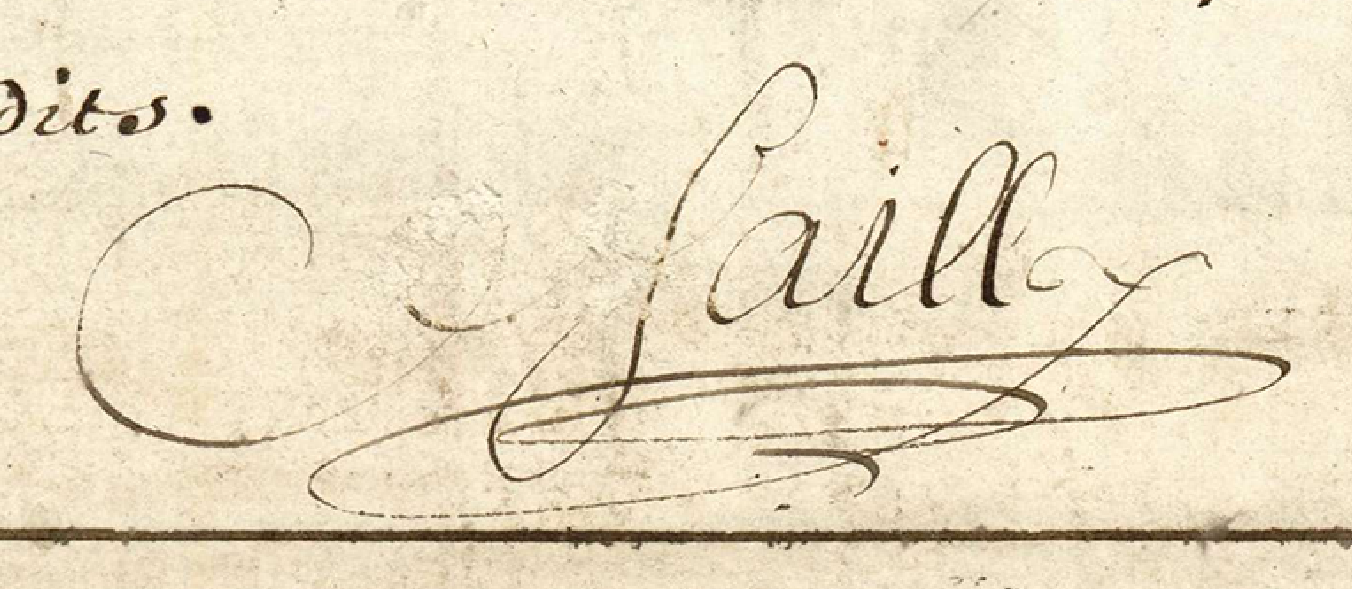 dits.
Sailly